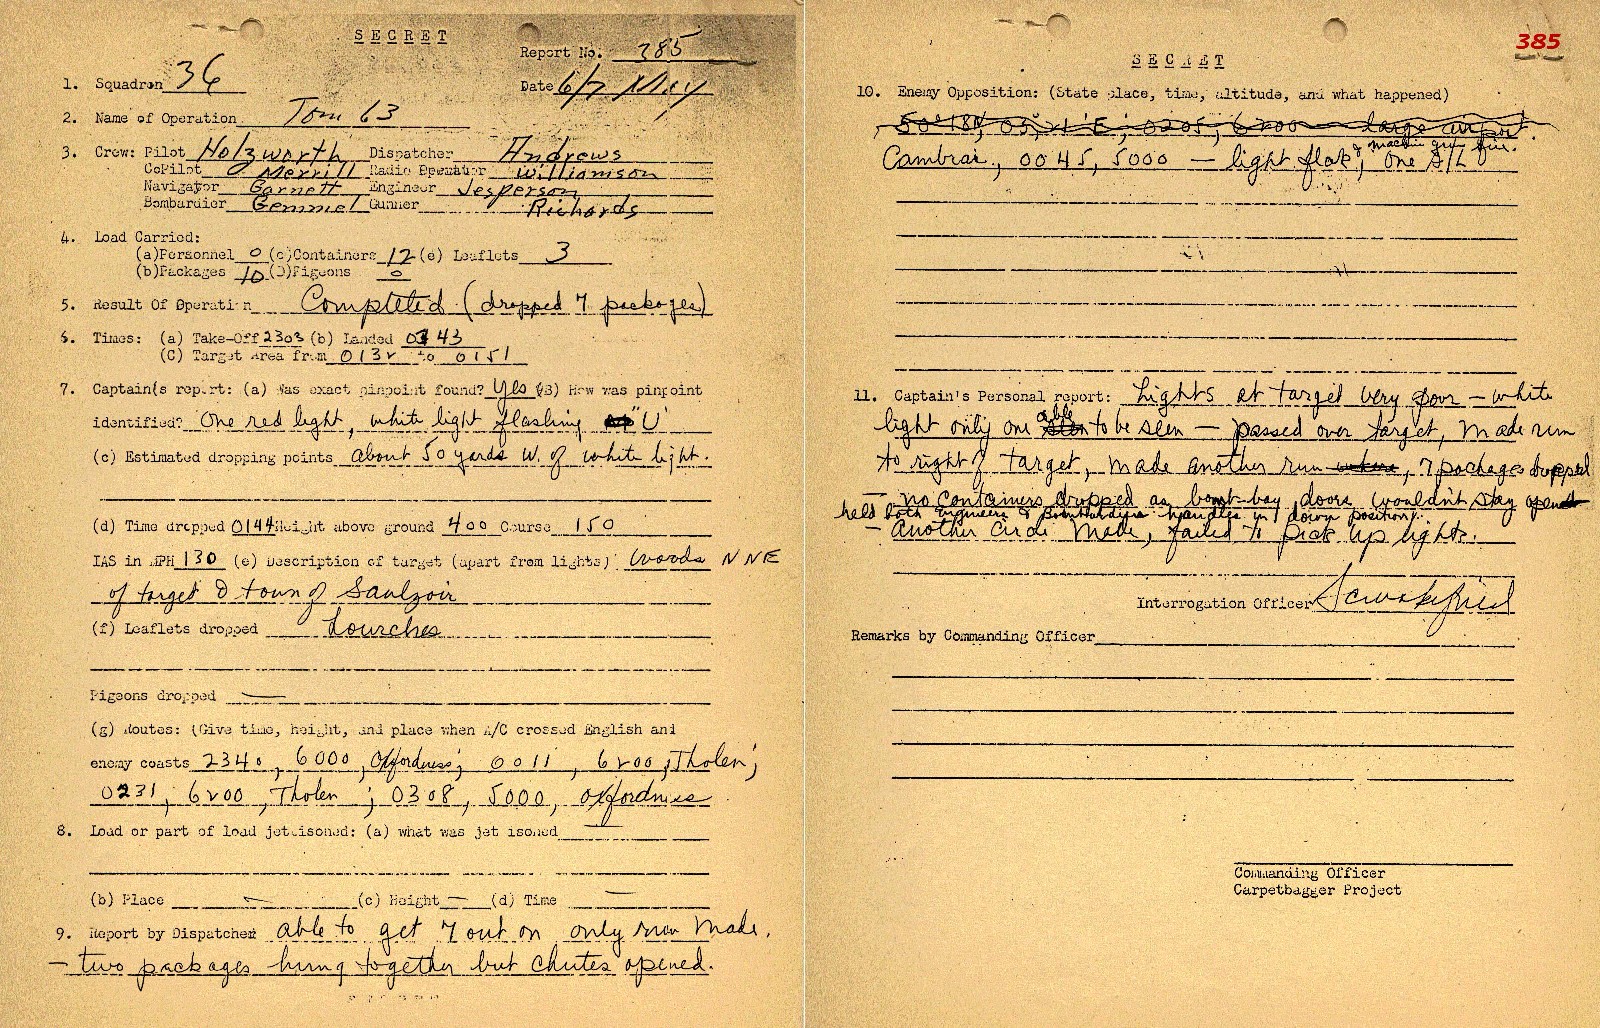 SECRET
Report No. 385
1. Squadron 36
Date 6/7 May
2. Name of Operation Tom 63
3. Crew: Pilot Holzworth Dispatcher Andrews
CoPilot Merrill Radio Operator Williamson
Navigator Garnett Engineer Jesperson
Bombardier Gemmel Gunner Richards
4. Load Carried:
(a)Personnel 0 (c)Containers 12 (e) Leaflets 3
(b)Packages 10 (D)Pigeons 0
5. Result Of Operation Completed (dropped 7 packages)
6. Times: (a) Take-Off 2303 (b) Landed 0343
(C) Target Area from 0132 to 0151
7. Captain's report: (a) Was exact pinpoint found? Yes (B) How was pinpoint
identified? One red light, white light flashing "U"
(c) Estimated dropping points about 50 yards W. of white light.
(d) Time dropped 0144 Height above ground 400 Course 150
IAS in MPH 130 (e) Description of target (apart from lights) Woods NNE
of target & town of Saulzoir
(f) Leaflets dropped Lourches
Pigeons dropped —
(g) Routes: (Give time, height, and place when A/C crossed English and
enemy coasts 2340, 6000, Oxfordness; 0011, 6200, Tholen;
0231, 6200, Tholen; 0308, 5000, Oxfordness
8. Load or part of load jettisoned: (a) what was jet isoned —
(b) Place — (c) Height — (d) Time —
9. Report by Dispatcher able to get 7 out on only run made.
— two packages hung together but chutes opened.
385
SECRET
10. Enemy Opposition: (State place, time, altitude, and what happened)
50°18N, 03°21'E; 0205, 6200 — large airport.
& machine gun fire.
Cambrai, 0045, 5000 — light flak, one S/L
11. Captain's Personal report: Lights at target very poor — white
light only one able to be seen — passed over target, made run
to right of target, made another run, 7 packages dropped
— no containers dropped as bomb-bay doors wouldn't stay open
held both Engineers & Bombardiers handles in down position.
— Another circle made, failed to pick up lights.
Interrogation Officer
Remarks by Commanding Officer
Commanding Officer
Carpetbagger Project